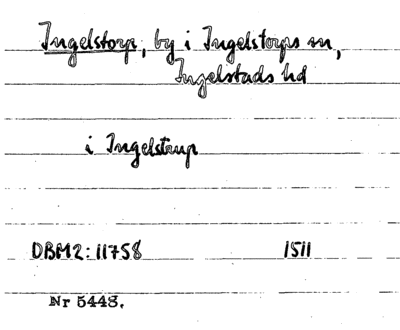 Ingelstorp, by i Ingelstorps sn,
Ingelstads hd
i Ingelstrup
DBM2: 11758 1511
Nr 5443.